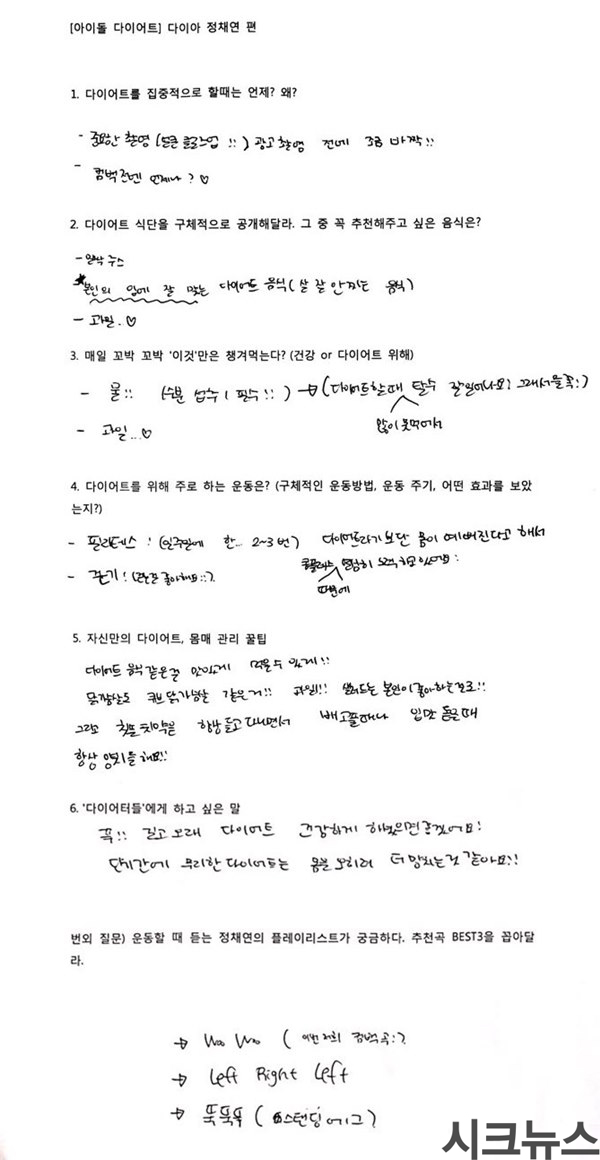 [아이돌 다이어트] 다이아 정채연 편
1. 다이어트를 집중적으로 할때는 언제? 왜?
- 중요한 촬영 (얼굴 클로즈업 !!) 광고 촬영 전에 조금 바짝!!
- 컴백 전엔 언제나? ♡
2. 다이어트 식단을 구체적으로 공개해달라. 그 중 꼭 추천해주고 싶은 음식은?
- 주스
★본인의 입에 잘 맞는 다이어트 음식 (살 잘 안찌는 음식)
- 과일..♡
3. 매일 꼬박 꼬박 '이것'만은 챙겨먹는다? (건강 or 다이어트 위해)
- 물!! (수분 섭취 필수!!) → (다이어트할때 탈수 잘일어나요! 그래서물꼭!)
많이 못먹어서
- 과일...♡
4. 다이어트를 위해 주로 하는 운동은? (구체적인 운동방법, 운동 주기, 어떤 효과를 보았
는지?)
- 필라테스! (일주일에 한... 2~3번) 다이어트라기 보단 몸이 예뻐진다고 해서
- 걷기! 좋아해요 열심히
때문에
5. 자신만의 다이어트, 몸매 관리 꿀팁
다이어트 음식같은걸 맛있게 먹을수 있게!!
닭가슴살도 큐브 닭가슴살 같은거!! 과일!! 샐러드는 본인이 좋아하는걸로!!
그리고 칫솔 치약을 항상 들고 다니면서 배고플때나 입맛 돋을때
항상 양치를 해요!!
6. '다이어터들'에게 하고 싶은 말
꼭!! 길고 오래 다이어트 건강하게 하셨으면 좋겠어요!
단시간에 무리한 다이어트는 몸을 오히려 더 망치는것 같아요!!
번외 질문) 운동할 때 듣는 정채연의 플레이리스트가 궁금하다. 추천곡 BEST3을 꼽아달
라.
→ Woo Woo (이번 저희 컴백곡:)
→ Left Right Left
→ 뚝뚝뚝 (스탠딩에그)
시크뉴스